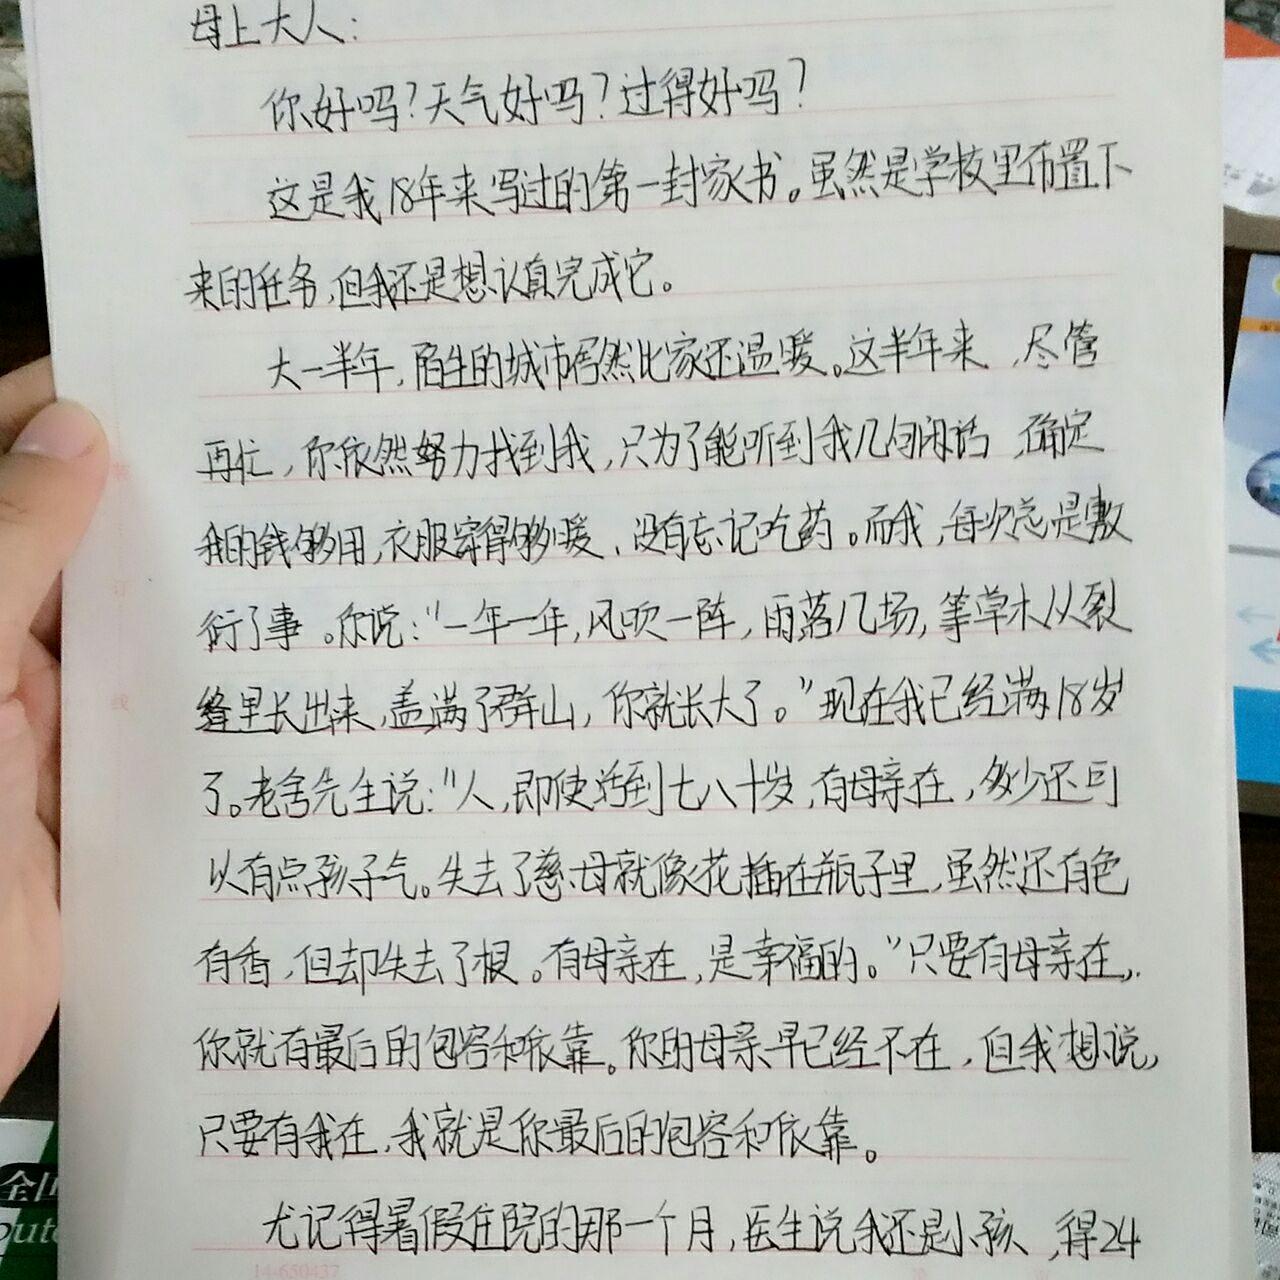 母上大人:
你好吗?天气好吗?过得好吗?
这是我18年来写过的第一封家书。虽然是学校里布置下
来的任务,但我还是想认真完成它。
大一半年,陌生的城市居然比家还温暖。这半年来,尽管
再忙,你依然努力找到我,只为了能听到我几句闲话,确定
我的钱够用,衣服穿得够暖、没有忘记吃药。而我,每次总是敷
衍了事。你说:"一年一年,风吹一阵,雨落几场,等草木从裂
缝里长出来,盖满了群山,你就长大了。"现在我已经满18岁
了。老舍先生说:"人,即使活到七八十岁,有母亲在,多少还可
以有点孩子气。失去了慈母就像花插在瓶子里,虽然还有色
有香,但却失去了根。有母亲在,是幸福的。"只要有母亲在,
你就有最后的包容和依靠。你的母亲早已经不在,但我想说,
只要有我在,我就是你最后的包容和依靠。
尤记得暑假住院的那一个月,医生说我还是小孩,得24
14-650437
订
线
全国